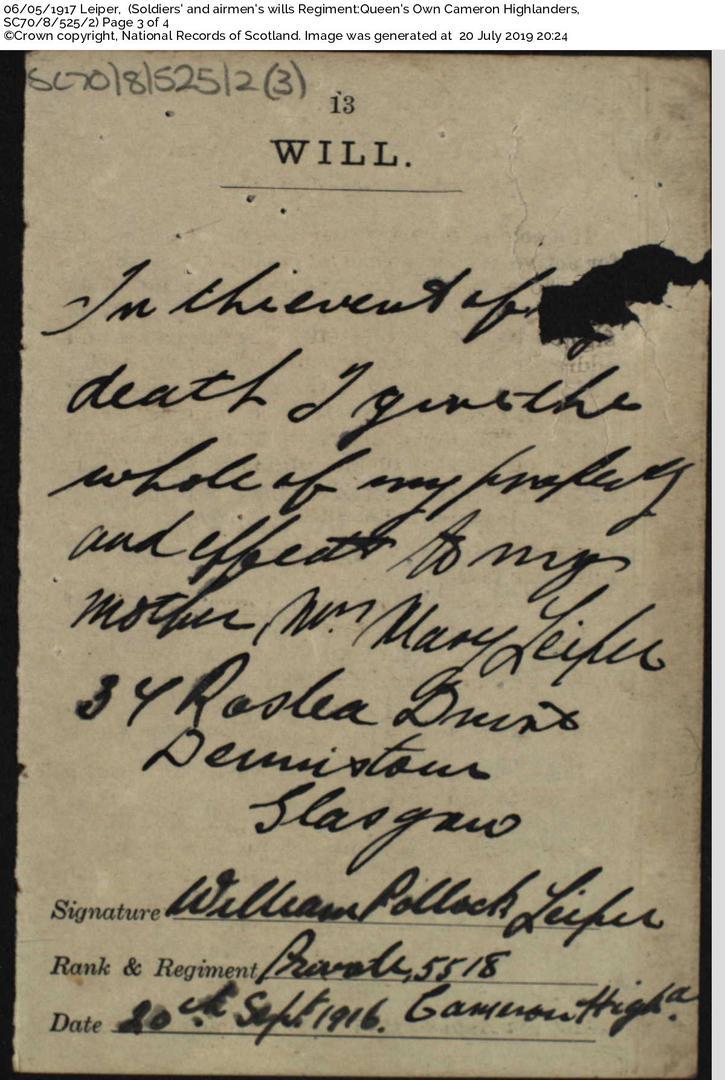 06/05/1917 Leiper,  (Soldiers' and airmen's wills Regiment:Queen's Own Cameron Highlanders,
SC70/8/525/2) Page 3 of 4
©Crown copyright, National Records of Scotland. Image was generated at  20 July 2019 20:24
SC70/8/525/2(3)
13
WILL.
In the event of
death I give the
whole of my property
and effects to my
mother, Mrs Mary Leiper
34 Roslea Drive
Dennistoun
Glasgow
Signature William Pollock Leiper
Rank & Regiment Private, 5518
Cameron Highrs.
Date 20th Sept 1916.